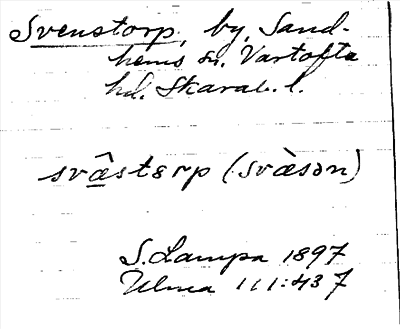 Svenstorp, by, Sand-
hems sn. Vartofta
hd. Skarab. l.
svâstɛrp (svàsən)
S. Lampa 1897
Ulma 111:437